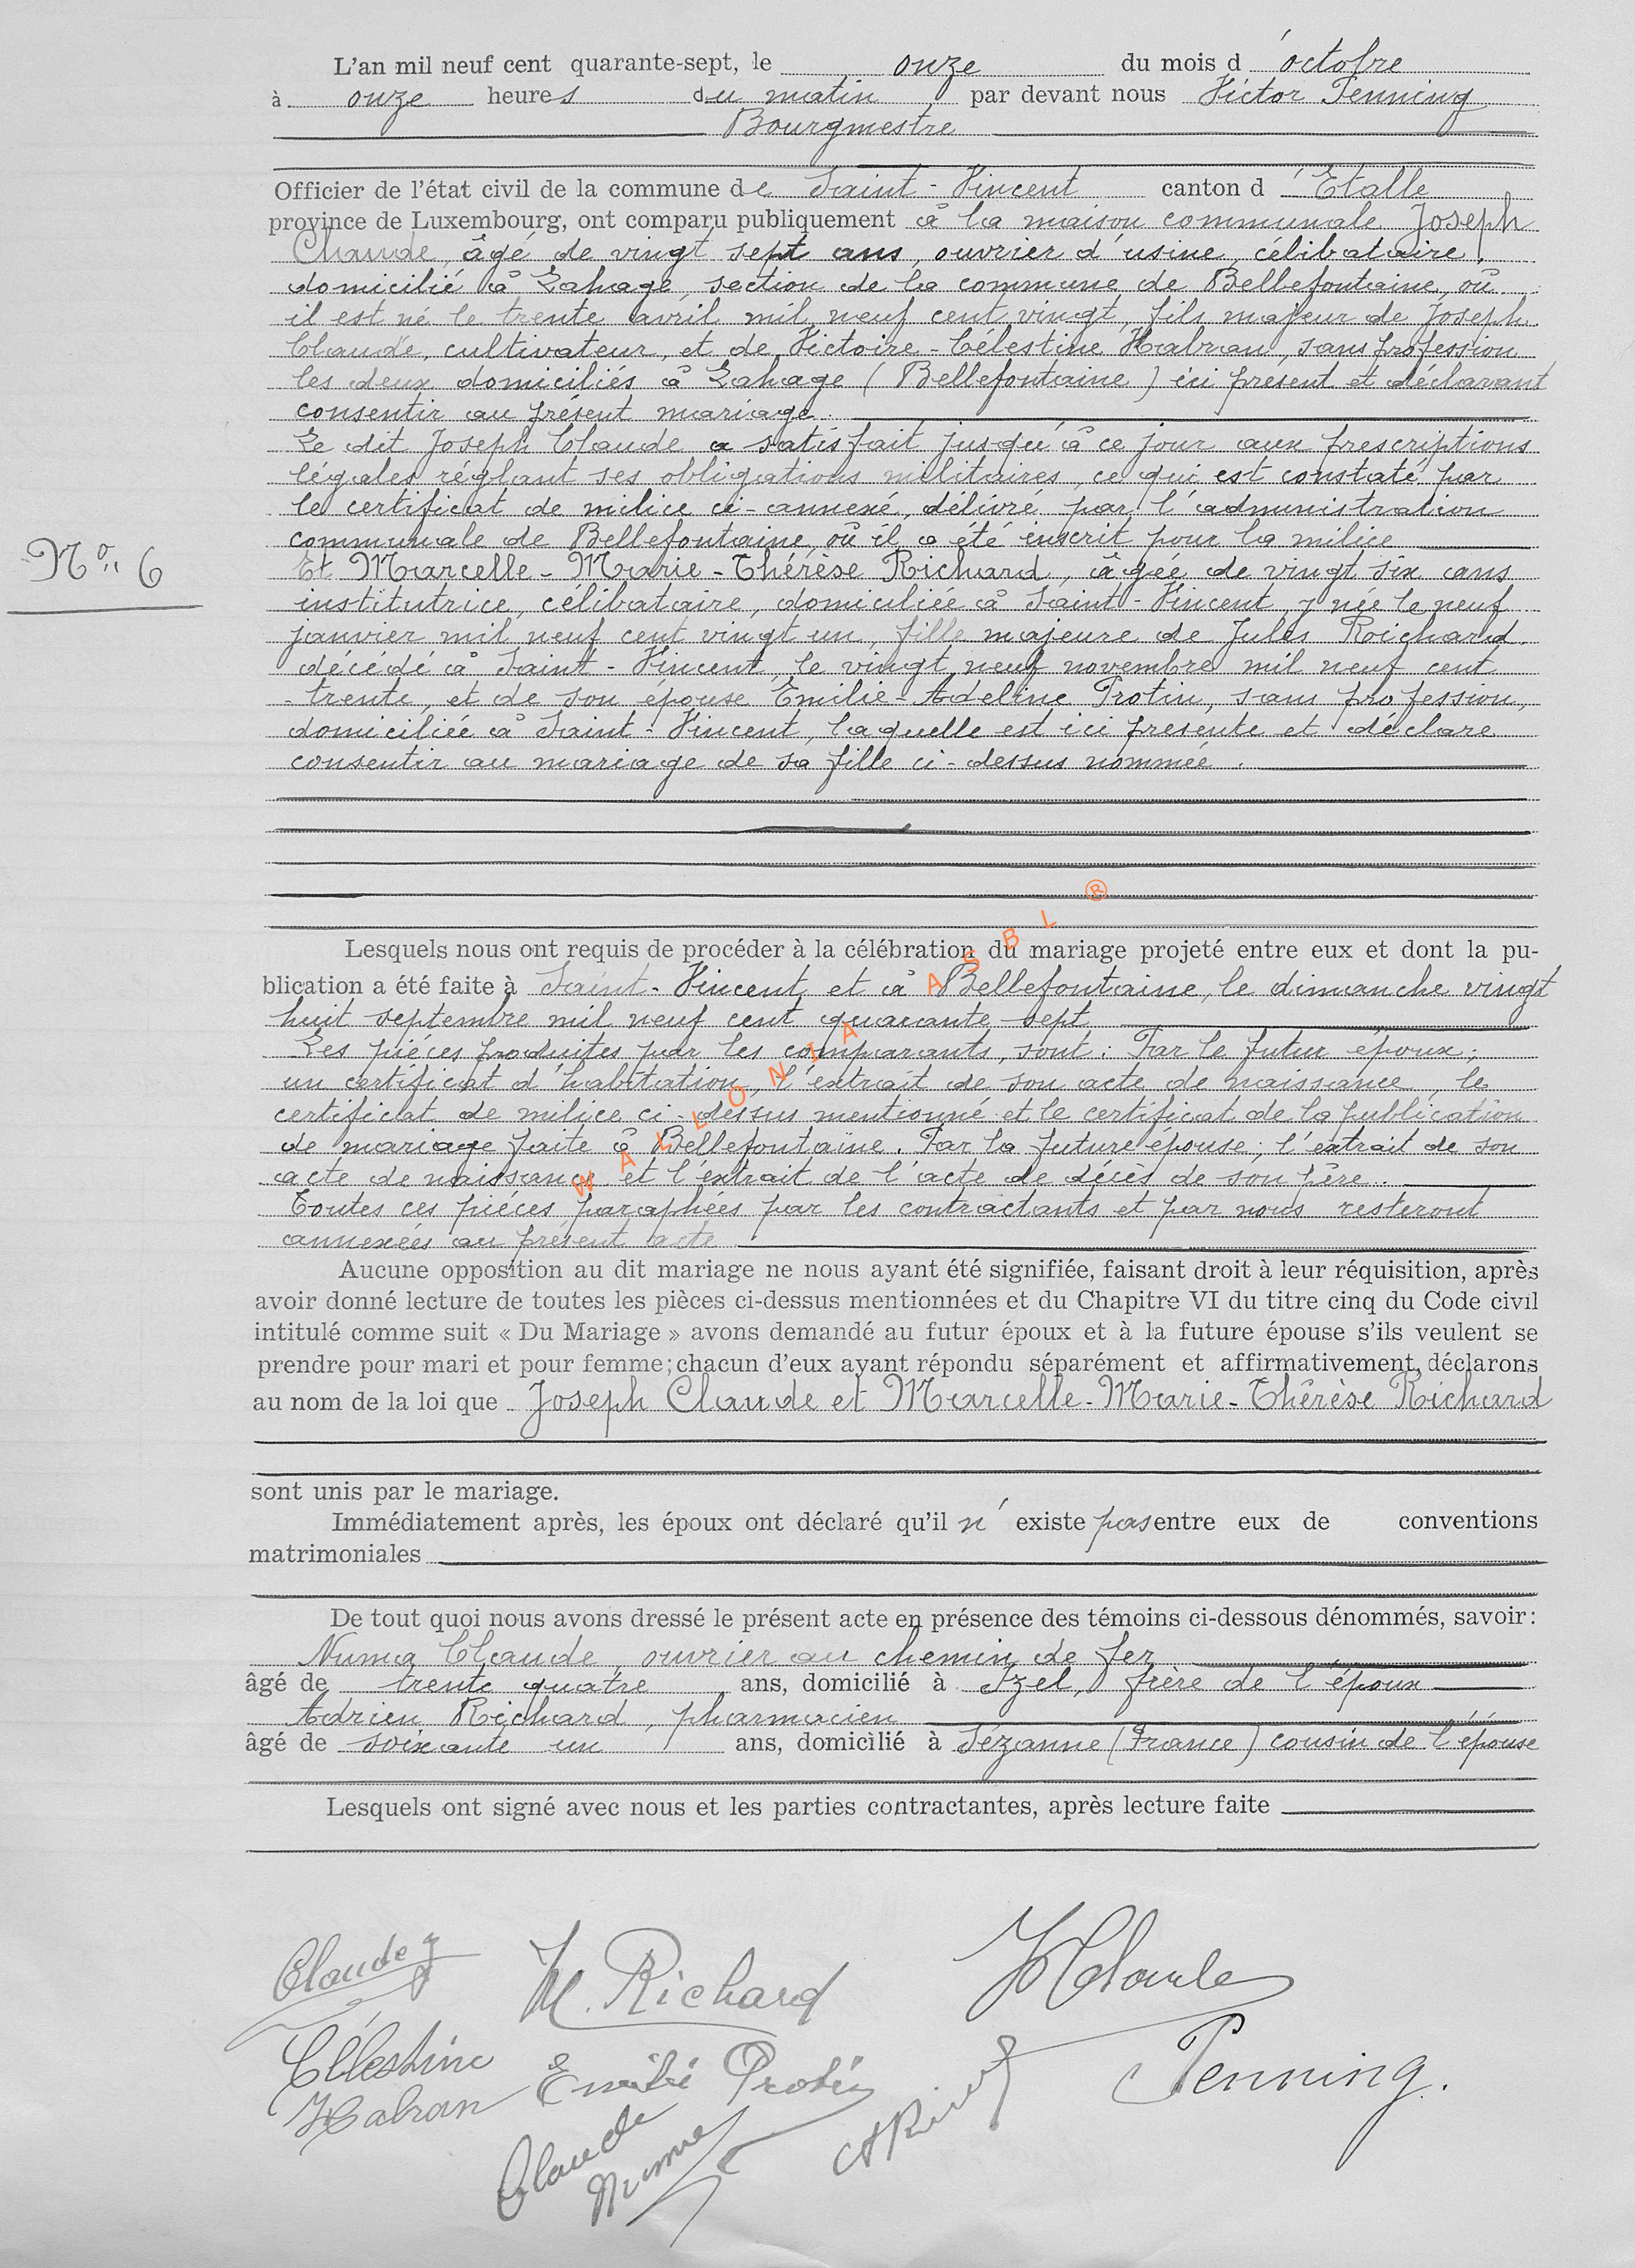 L'an mil neuf cent quarante-sept, le onze du mois d'octobre
à onze heures du matin par devant nous Victor Penning
Bourgmestre
Officier de l'état civil de la commune de Saint-Vincent canton d'Etalle
province de Luxembourg, ont comparu publiquement à la maison communale Joseph
Claude, âgé de vingt sept ans, ouvrier d'usine, célibataire,
domicilié à Lahage, section de la commune de Bellefontaine, où
il est né le trente avril mil neuf cent vingt, fils majeur de Joseph
Claude, cultivateur, et de Victoire-Célestine Habran, sans profession
les deux domiciliés à Lahage (Bellefontaine) ici présent et déclarant
consentir au présent mariage.
Le dit Joseph Claude a satisfait jusqu'à ce jour aux prescriptions
légales réglant ses obligations militaires, ce qui est constaté par
le certificat de milice ci-annexé, délivré par l'administration
communale de Bellefontaine, où il a été inscrit pour la milice
N° 6
Et Marcelle-Marie-Thérèse Richard, âgée de vingt six ans
institutrice, célibataire, domiciliée à Saint-Vincent, y née le neuf
janvier mil neuf cent vingt un, fille majeure de Jules Richard,
décédé à Saint-Vincent, le vingt neuf novembre mil neuf cent
trente, et de son épouse Emilie-Adeline Protin, sans profession,
domiciliée à Saint-Vincent, laquelle est ici présente et déclare
consentir au mariage de sa fille ci-dessus nommée.
Lesquels nous ont requis de procéder à la célébration du mariage projeté entre eux et dont la pu-
blication a été faite à Saint-Vincent et à Bellefontaine, le dimanche vingt
huit septembre mil neuf cent quarante sept
Les pièces produites par les comparants, sont: Par le futur époux;
un certificat d'habitation, l'extrait de son acte de naissance le
certificat de milice ci-dessus mentionné et le certificat de la publication
de mariage faite à Bellefontaine. Par la future épouse; l'extrait de son
acte de naissance et l'extrait de l'acte de décès de son père.
Toutes ces pièces paraphées par les contractants et par nous resteront
annexées au présent acte
WALLONIA ASBL ®
Aucune opposition au dit mariage ne nous ayant été signifiée, faisant droit à leur réquisition, après
avoir donné lecture de toutes les pièces ci-dessus mentionnées et du Chapitre VI du titre cinq du Code civil
intitulé comme suit « Du Mariage » avons demandé au futur époux et à la future épouse s'ils veulent se
prendre pour mari et pour femme; chacun d'eux ayant répondu séparément et affirmativement, déclarons
au nom de la loi que Joseph Claude et Marcelle-Marie-Thérèse Richard
sont unis par le mariage.
Immédiatement après, les époux ont déclaré qu'il n'existe pas entre eux de conventions
matrimoniales
De tout quoi nous avons dressé le présent acte en présence des témoins ci-dessous dénommés, savoir:
Numa Claude, ouvrier au chemin de fer
âgé de trente quatre ans, domicilié à Izel, frère de l'époux
Adrien Richard, pharmacien
âgé de soixante un ans, domicilié à Sézanne (France) cousin de l'épouse
Lesquels ont signé avec nous et les parties contractantes, après lecture faite
Claude J
M. Richard
Claude
Célestine
Habran
Emilie Protin
Penning.
Claude
Numa